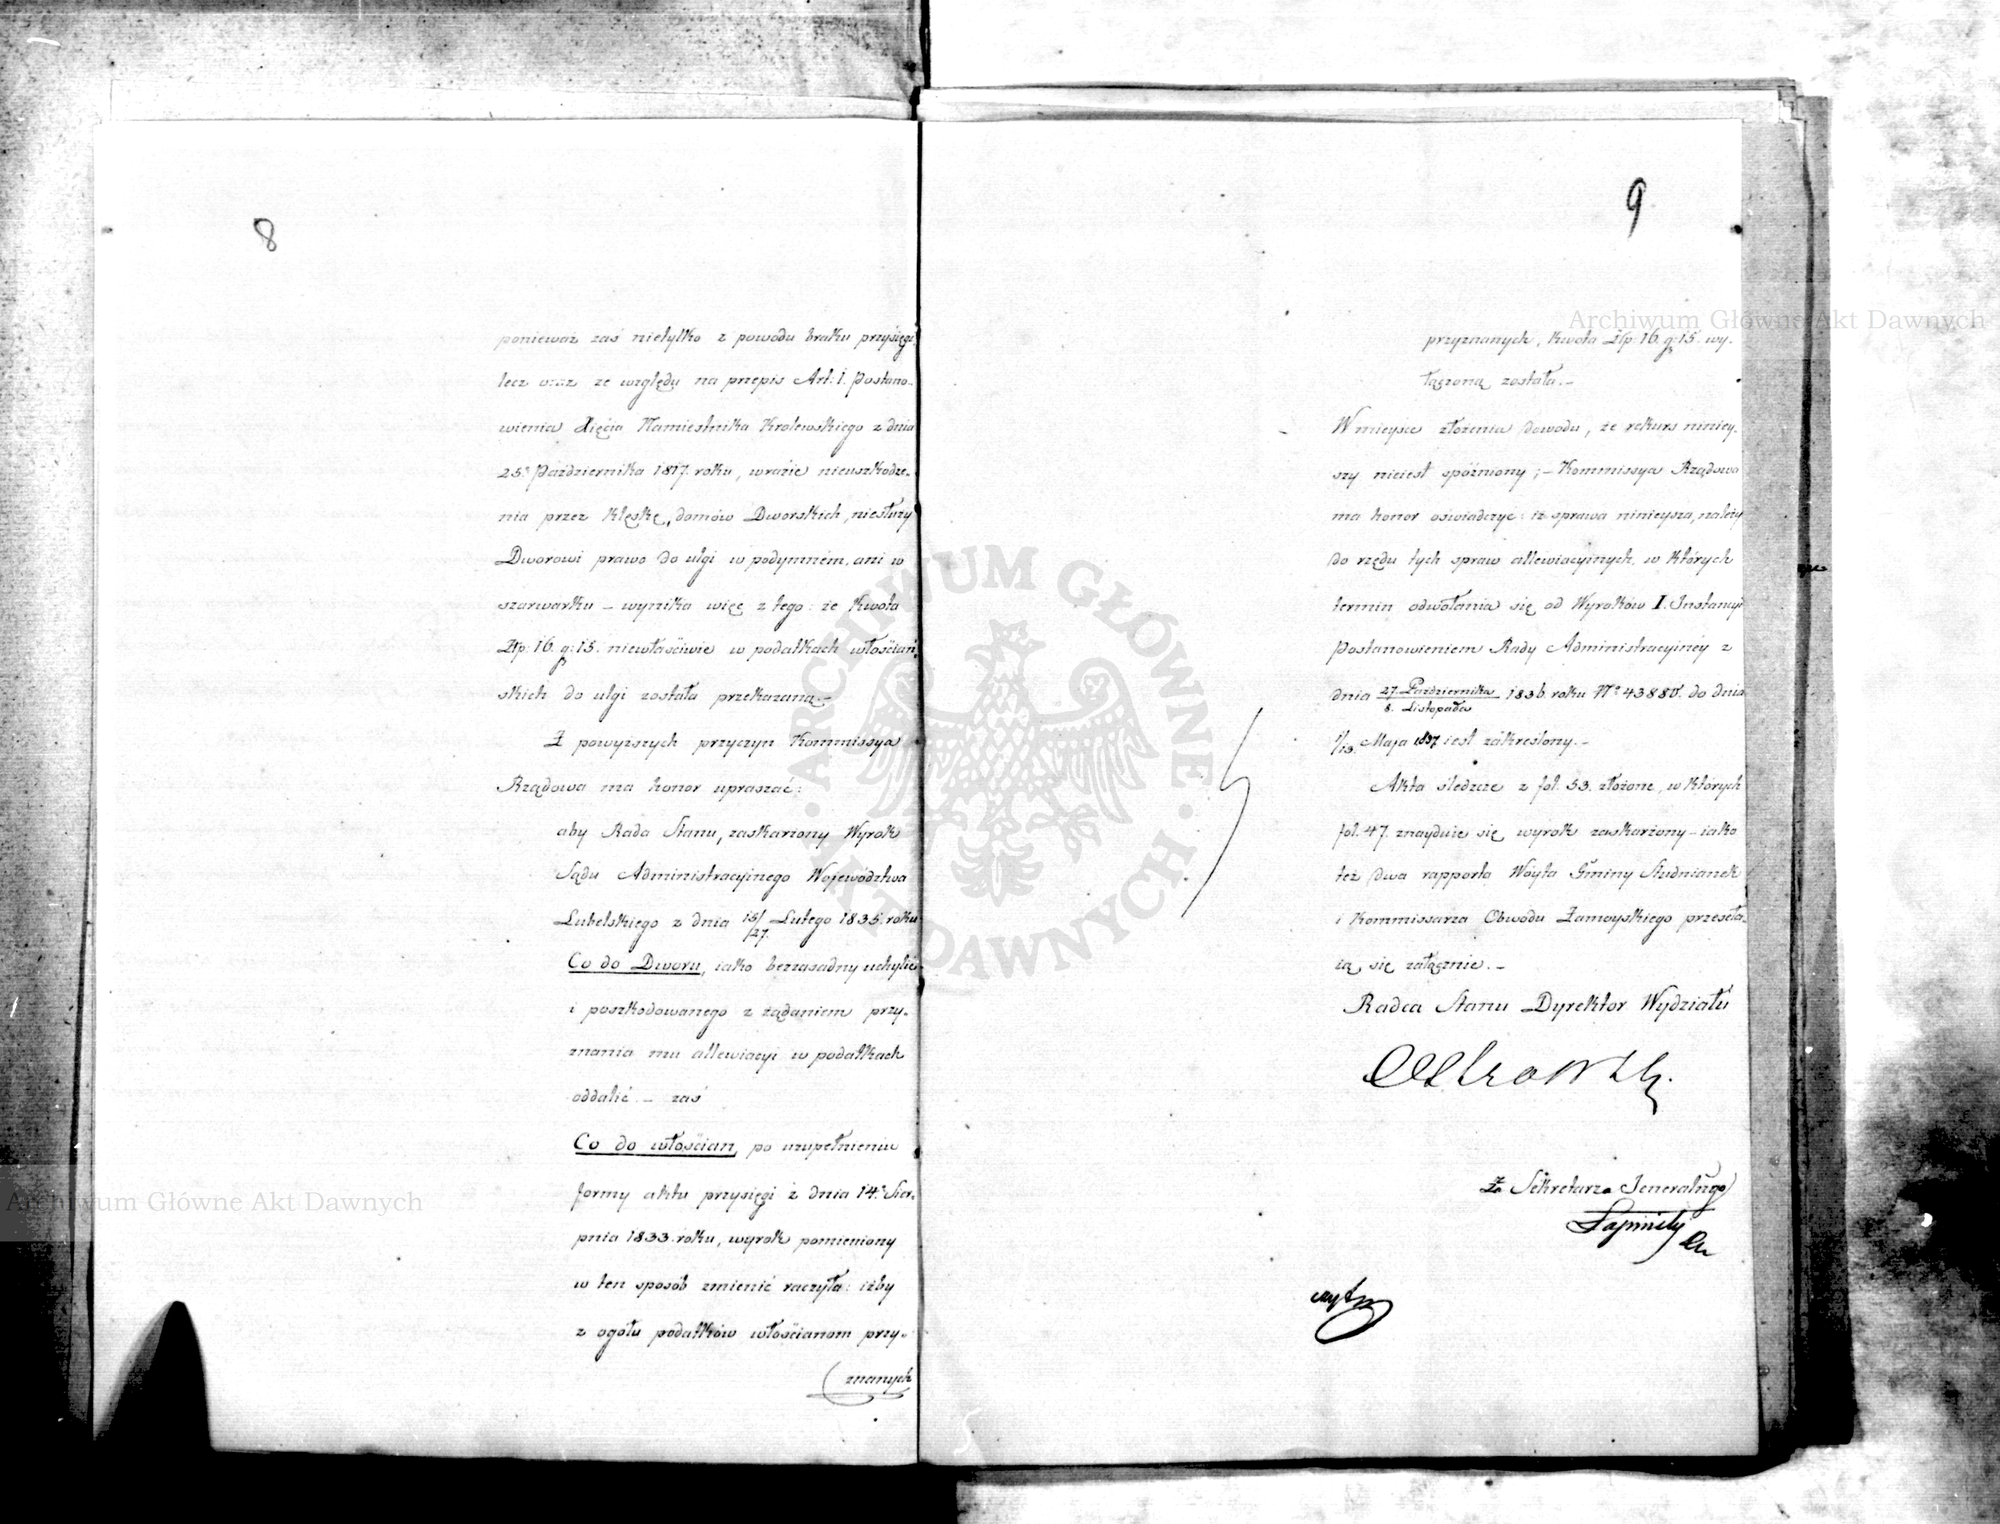 8
ponieważ zaś nietylko z powodu braku przysięgi,
lecz oraz ze względu na przepis Art: 1. Postano-
wienia Xięcia Namiestnika Krolewskiego z dnia
25º Października 1817. roku, wrazie nieuszkodze-
nia przez klęskę, domów Dworskich, niesłuży
Dworowi prawo do ulgi w podymném, ani w
szarwarku – wynika więc z tego: że kwota
Złp: 16. g: 15. niewłaściwie w podatkach włościań-
skich do ulgi została przekazana. –
Z powyższych przyczyn Kommissya
Rządowa ma honor upraszać:
aby Rada Stanu, zaskarżony Wyrok
Sądu Administracyjnego Województwa
Lubelskiego z dnia 15/27. Lutego 1835. roku
Co do Dworu, iako bezzasadny uchylić
i poszkodowanego z żądaniem przy-
znania mu allewiacyi w podatkach
oddalić. – zaś
Co do włościan, po uzupełnieniu
formy aktu przysięgi z dnia 14º Sier-
pnia 1833. roku, wyrok pomieniony
w ten sposób zmienić raczyła: iżby
z ogółu podatków włościanom przy-
znanych
9
przyznanych, kwota Złp: 16. g: 15. wy-
łączoną została. –
W mieysce złożenia dowodu, że rekurs niniey-
szy nieiest spóźniony; – Kommissya Rządowa
ma honor oświadczyć: iż sprawa ninieysza, należy
do rzędu tych spraw allewiacyinych, w których
termin odwołania się od Wyroków I. Instancyi
Postanowieniem Rady Administracyiney z
dnia 27. Października/8. Listopada 1836. roku Nº 43880. do dnia
1/13. Maja 1837 iest zakreślony. –
Akta śledcze z fol. 53. złożone, w których
fol. 47. znayduie się wyrok zaskarżony – iako
też dwa rapporta Wóyta Gminy Studnianek
i Kommissarza Obwodu Zamoyskiego przeseła-
ią się załącznie. –
Radca Stanu Dyrektor Wydziału
Za Sekretarza Jeneralnego
Archiwum Główne Akt Dawnych
Archiwum Główne Akt Dawnych
ARCHIWUM GŁÓWNE · AKT DAWNYCH ·